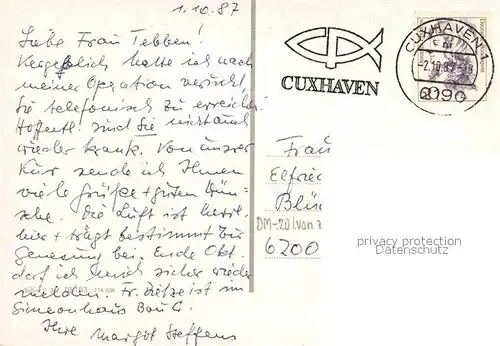 1.10.87
Liebe Frau Tebben!
Vergeblich hatte ich nach
meiner Operation versucht,
Sie telefonisch zu erreichen.
Hoffentl. sind Sie nicht auch
wieder krank. Von unserer
Kur sende ich Ihnen
viele Grüße + guten Wün-
sche. Die Luft ist herrl.
hier + trägt bestimmt zur
Genesung bei. Ende Okt.
darf ich mich sicher wieder
melden. Fr. Dietze ist im
Simeonhaus Bau
Ihre Margot Steffens
CUXHAVEN
CUXHAVEN 1
-2.10.87
2190
Frau
Elfried
Blü
DM-.20 (von
6200
privacy protection
Datenschutz